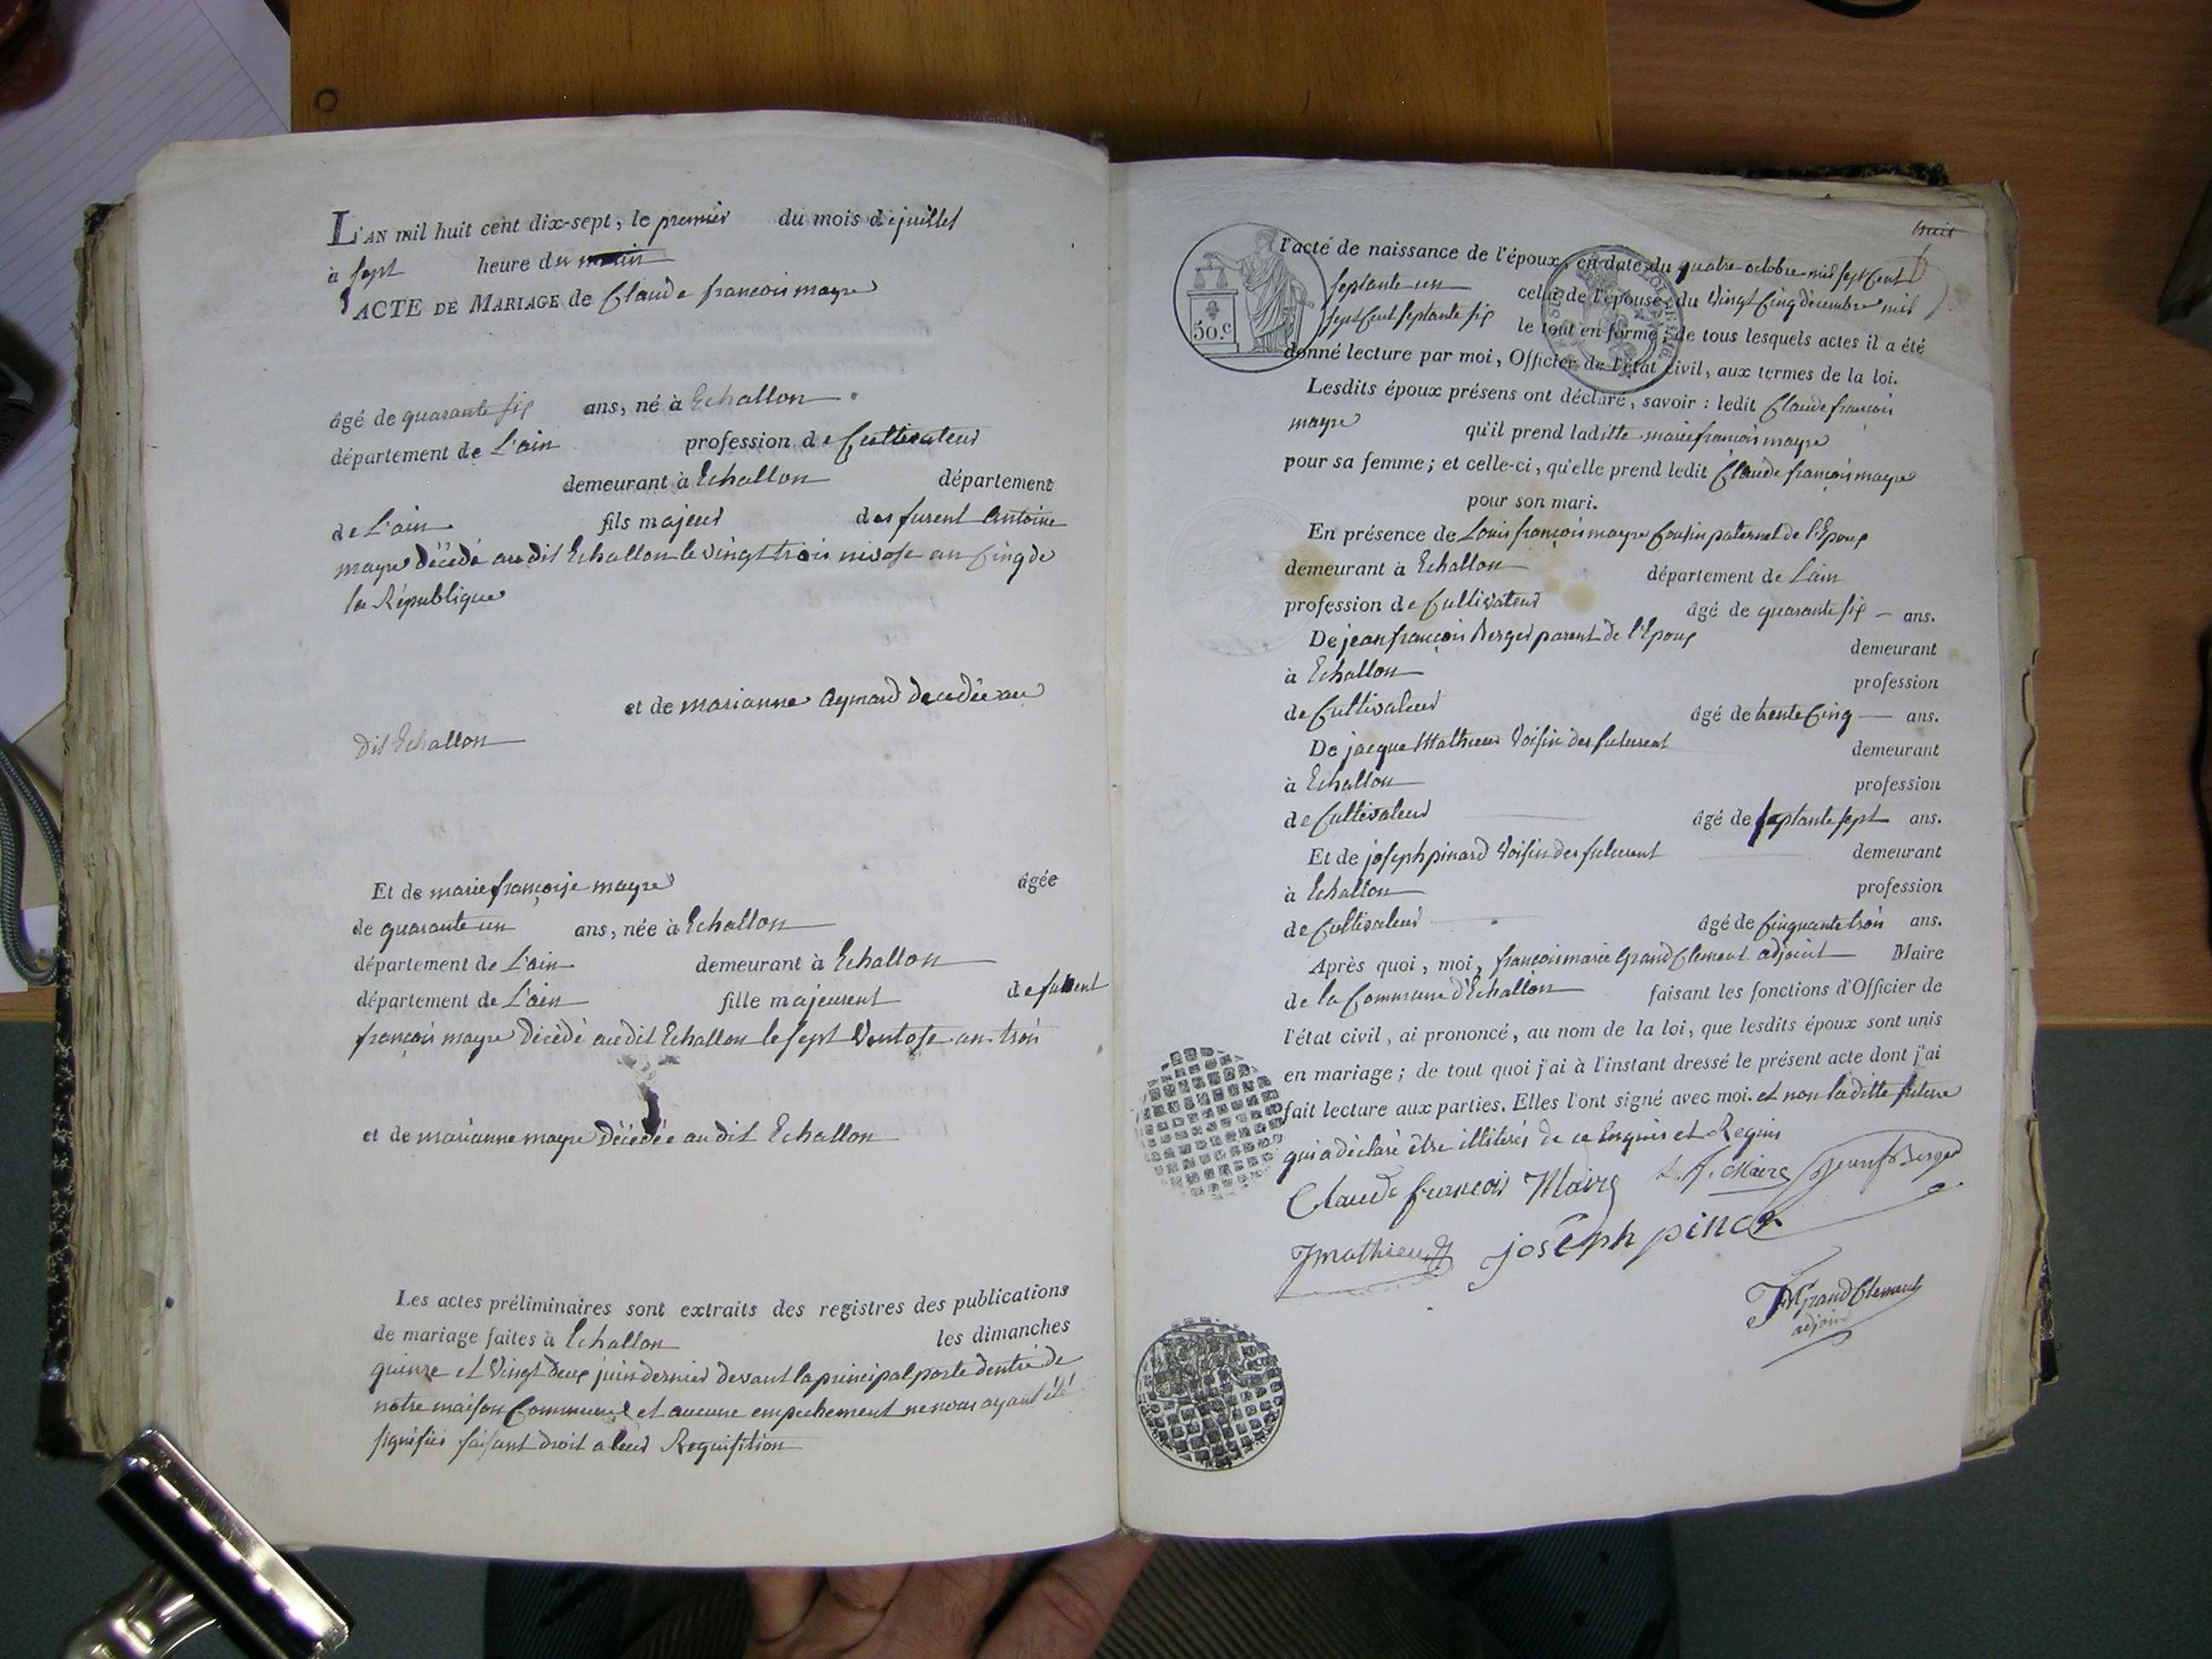 L'AN mil huit cent dix-sept, le premier du mois de juillet
à sept heure du matin
ACTE DE MARIAGE de Claude francois mayre
âgé de quarante six ans, né à Echallon
département de L'ain profession de Cultivateur
demeurant à Echallon département
de L'ain fils majeur des furent Antoine
mayre décédé audit Echallon le vingt trois nivose an Cinq de
la République
et de marianne Aymard decedée au
dit Echallon
Et de marie françoise mayre âgée
de quarante un ans, née à Echallon
département de L'ain demeurant à Echallon
département de L'ain fille majeurent de furent
françois mayre décédé audit Echallon le sept Ventose an trois
et de marianne mayre décédée au dit Echallon
Les actes préliminaires sont extraits des registres des publications
de mariage faites à Echallon les dimanches
quinze et vingt deux juin dernier devant la principal porte dentré de
notre maison Commune et aucune empechement ne nous ayant été
signifiés faisant droit a leur Requisition
huit
l'acte de naissance de l'époux, en date du quatre octobre mil sept Cent
septante un celui de l'épouse, du Vingt Cinq décembre mil
sept Cent septante six le tout en forme; de tous lesquels actes il a été
50.c
donné lecture par moi, Officier de l'état civil, aux termes de la loi.
Lesdits époux présens ont déclaré, savoir : ledit Claude françois
mayre qu'il prend laditte marie francois mayre
pour sa femme; et celle-ci, qu'elle prend ledit Claude françois mayre
pour son mari.
En présence de Louis françois mayre Cousin paternel de l'Epoux
demeurant à Echallon département de Lain
profession de Cultivateur âgé de quarante six ans.
De jean françois Berger parent de l'Epoux demeurant
à Echallon profession
de Cultivateur âgé de trente Cinq ans.
De jacque Mathieu Voisin des futurent demeurant
à Echallon profession
de Cultivateur âgé de septante sept ans.
Et de joseph pinard Voisin des futurent demeurant
à Echallon profession
de Cultivateur âgé de Cinquante trois ans.
Après quoi, moi, francois marie Grand Clement adjoint Maire
de la Commune d'Echallon faisant les fonctions d'Officier de
l'état civil, ai prononcé, au nom de la loi, que lesdits époux sont unis
en mariage; de tout quoi j'ai à l'instant dressé le présent acte dont j'ai
fait lecture aux parties. Elles l'ont signé avec moi. et non laditte future
qui a déclaré être illiterés de ce Enquis et Requis
Claude francois Maire L. f. Maire Jean f Berger
J mathieu joseph pinar
FM Grand Clement
adjoint